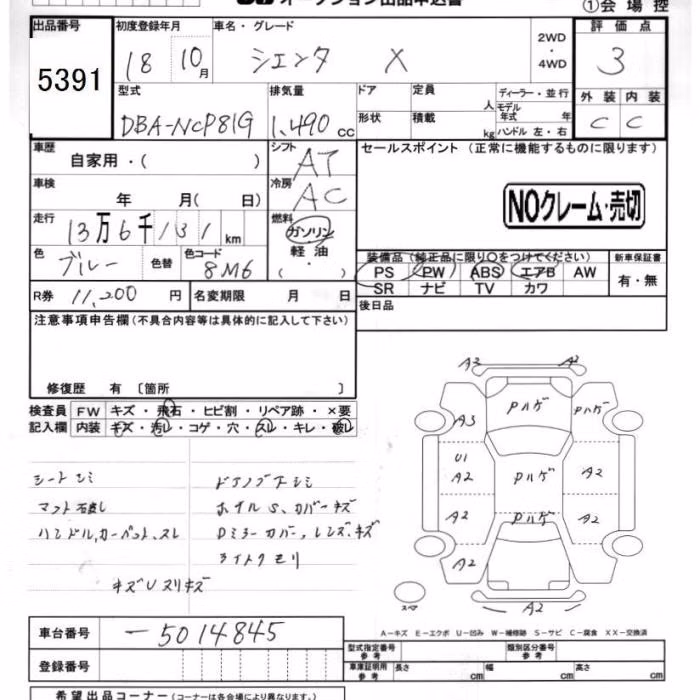 オークション出品申込書 ①会場控
出品番号 初度登録年月 車名・グレード 2WD・4WD 評価点
5391 18 10月 シエンタ X 3
型式 排気量 ドア 定員 人 ディーラー・並行 外装 内装
DBA-NCP81G 1,490 cc 形状 積載 kg モデル年式 年 ハンドル 左・右 C C
車歴 自家用・( ) シフト AT セールスポイント (正常に機能するものに限ります)
車検 年 月( 日) 冷房 AC NOクレーム・売切
走行 13万6千131km 燃料 ガソリン 軽油 ( ・ )
色 ブルー 色替 色コード 8M6
装備品(純正品に限り○をつけてください) 新車保証書
PS PW ABS エアB AW 有・無
SR ナビ TV カワ
R券 11,200円 名変期限 月 日 後日品
注意事項申告欄(不具合内容等は具体的に記入して下さい)
修復歴 有 〔箇所 〕
検査員 FW キズ・飛石・ヒビ割・リペア跡・×要
記入欄 内装 キズ・汚レ・コゲ・穴・スレ・キレ・破レ
シートシミ
マット破し
ハンドル,カーペット,スレ
ドアノブ下シミ
ホイルS、カバーキズ
Dミラーカバー,レンズ,キズ
ライトクモリ
キズUスリキズ
A3 A2
Pハゲ Pハゲ
A3
U1
A2 Pハゲ A2
A2 Pハゲ A2
A2
スペア A2
A−キズ E−エクボ U−凹み W−補修跡 S−サビ C−腐食 XX−交換済
車台番号 −5014845
登録番号
型式指定番号 参考 類別区分番号 参考
車庫証明用 参考 長さ cm 幅 cm 高さ cm
希望出品コーナー(コーナーは各会場により異なります。)